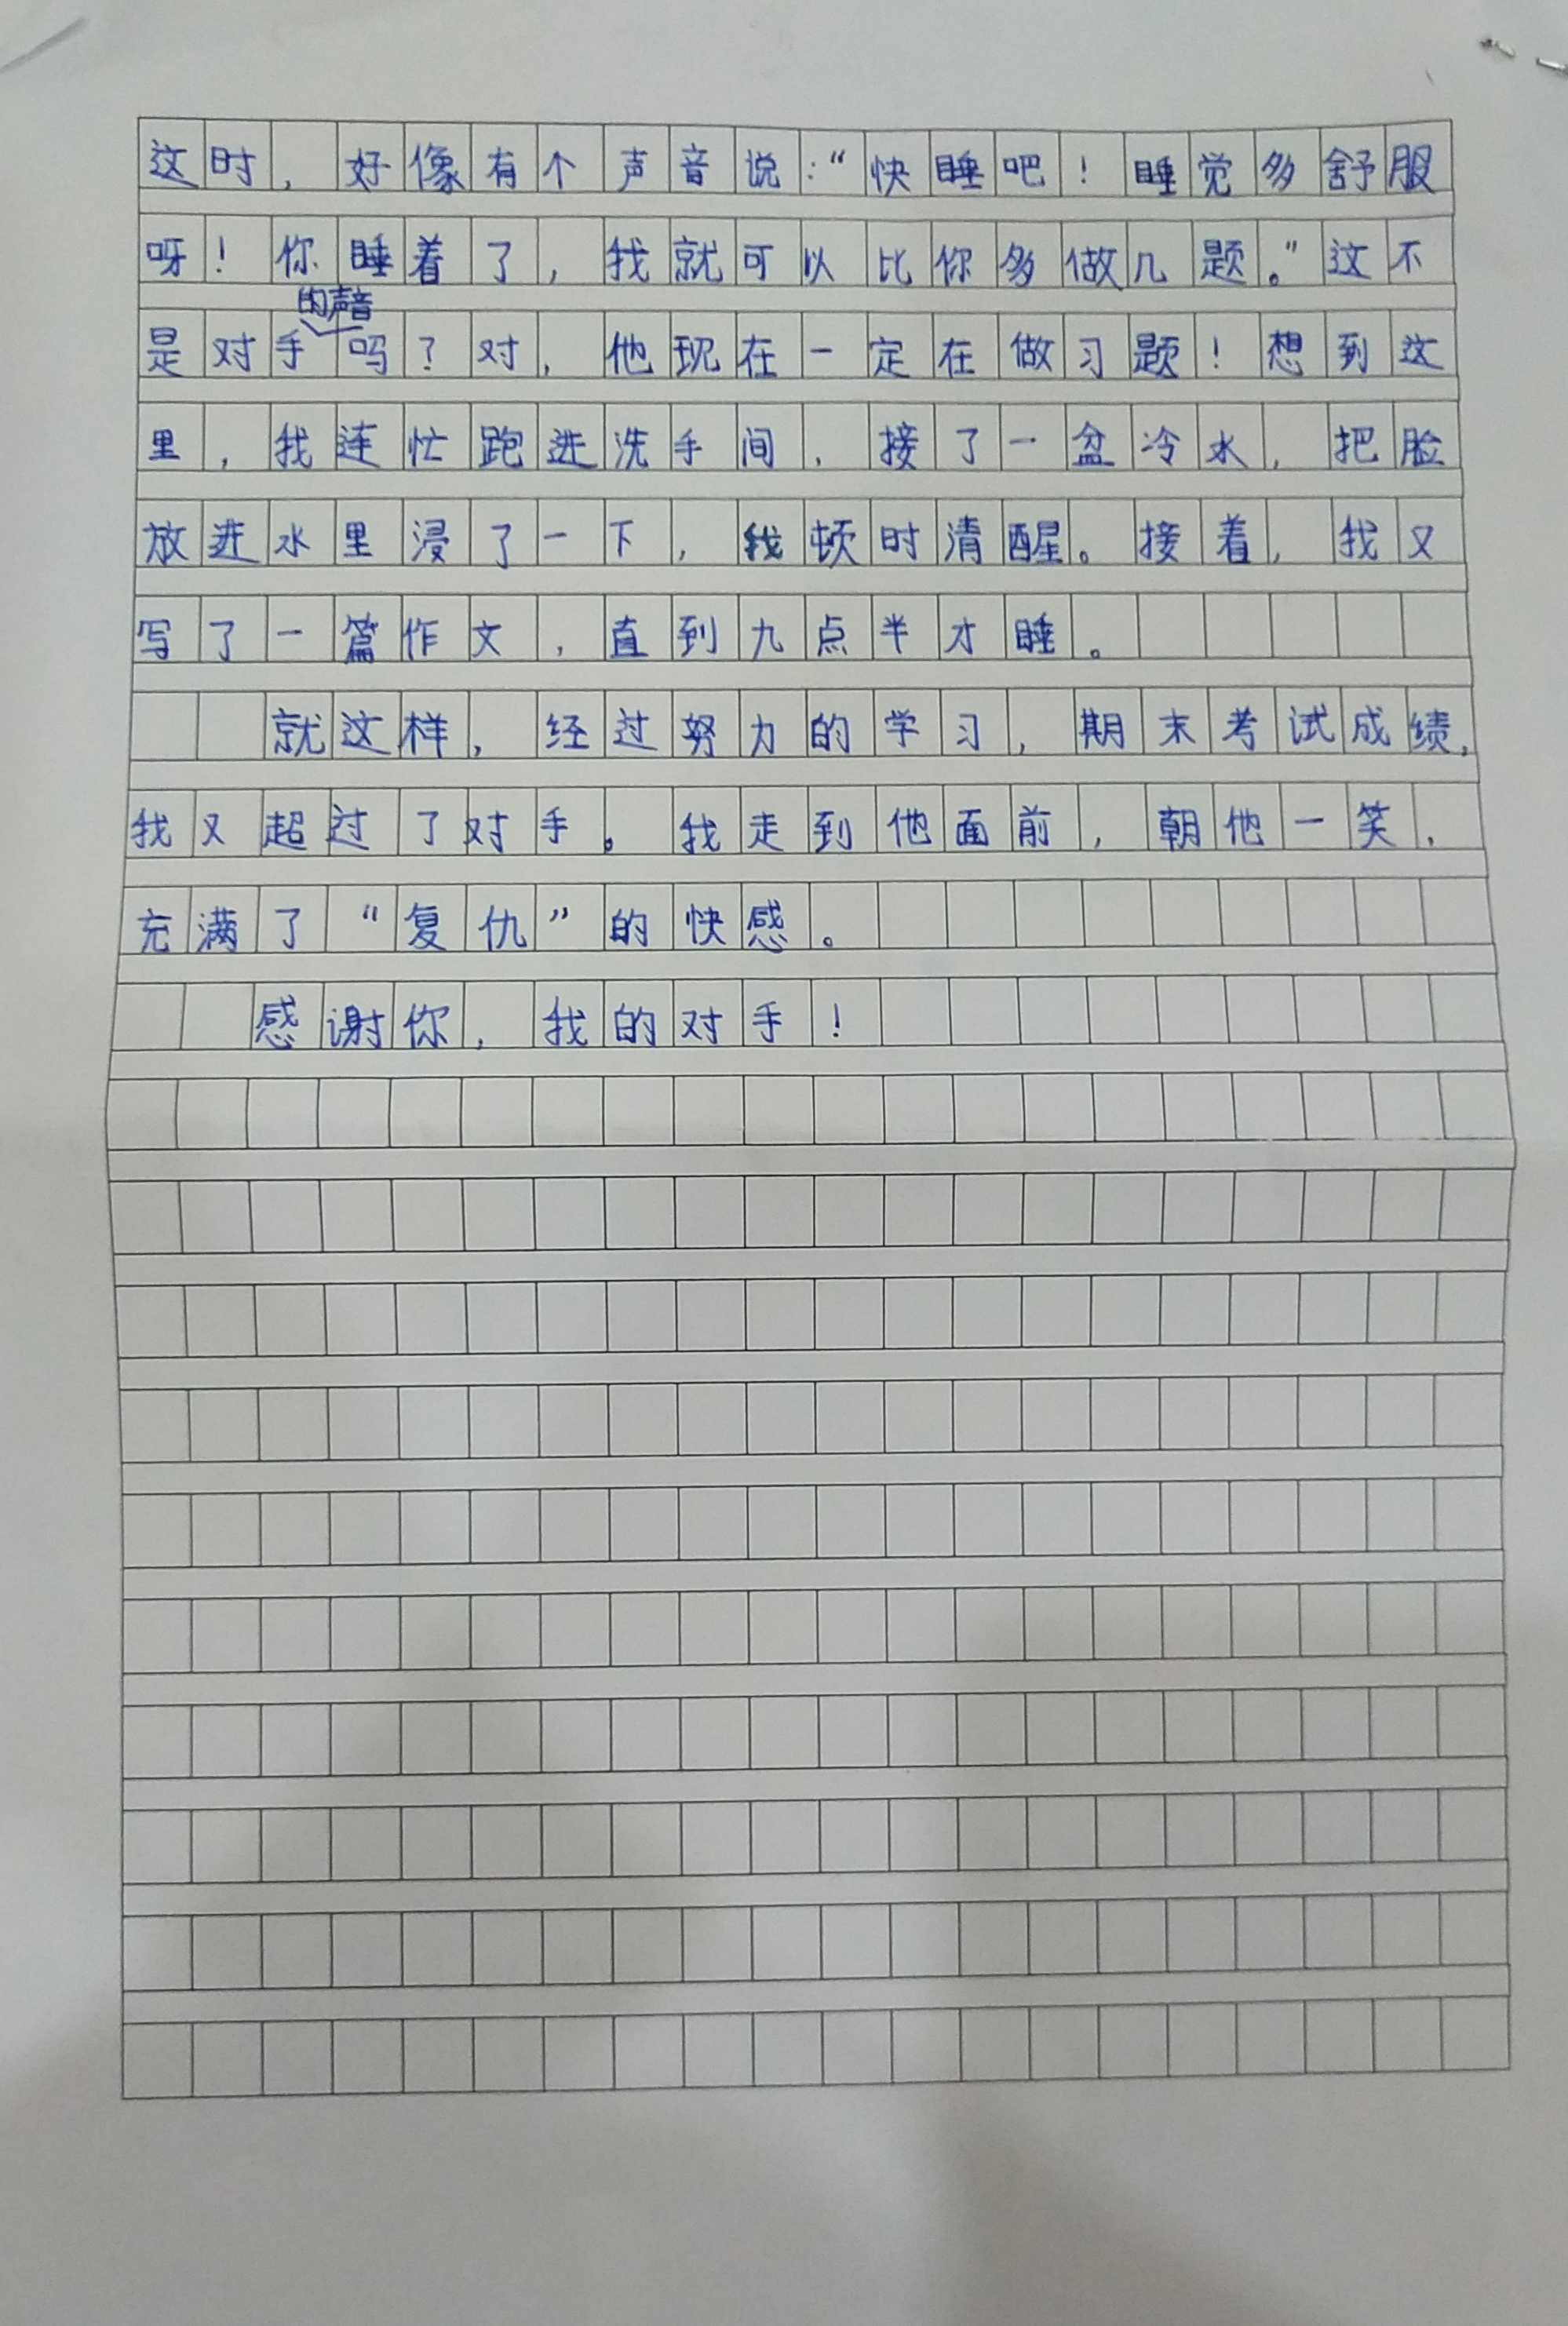 这时，好像有个声音说：“快睡吧！睡觉多舒服
呀！你睡着了，我就可以比你多做几题。”这不
是对手的声音吗？对，他现在一定在做习题！想到这
里，我连忙跑进洗手间，接了一盆冷水，把脸
放进水里浸了一下，我顿时清醒。接着，我又
写了一篇作文，直到九点半才睡。
就这样，经过努力的学习，期末考试成绩，
我又超过了对手。我走到他面前，朝他一笑，
充满了“复仇”的快感。
感谢你，我的对手！